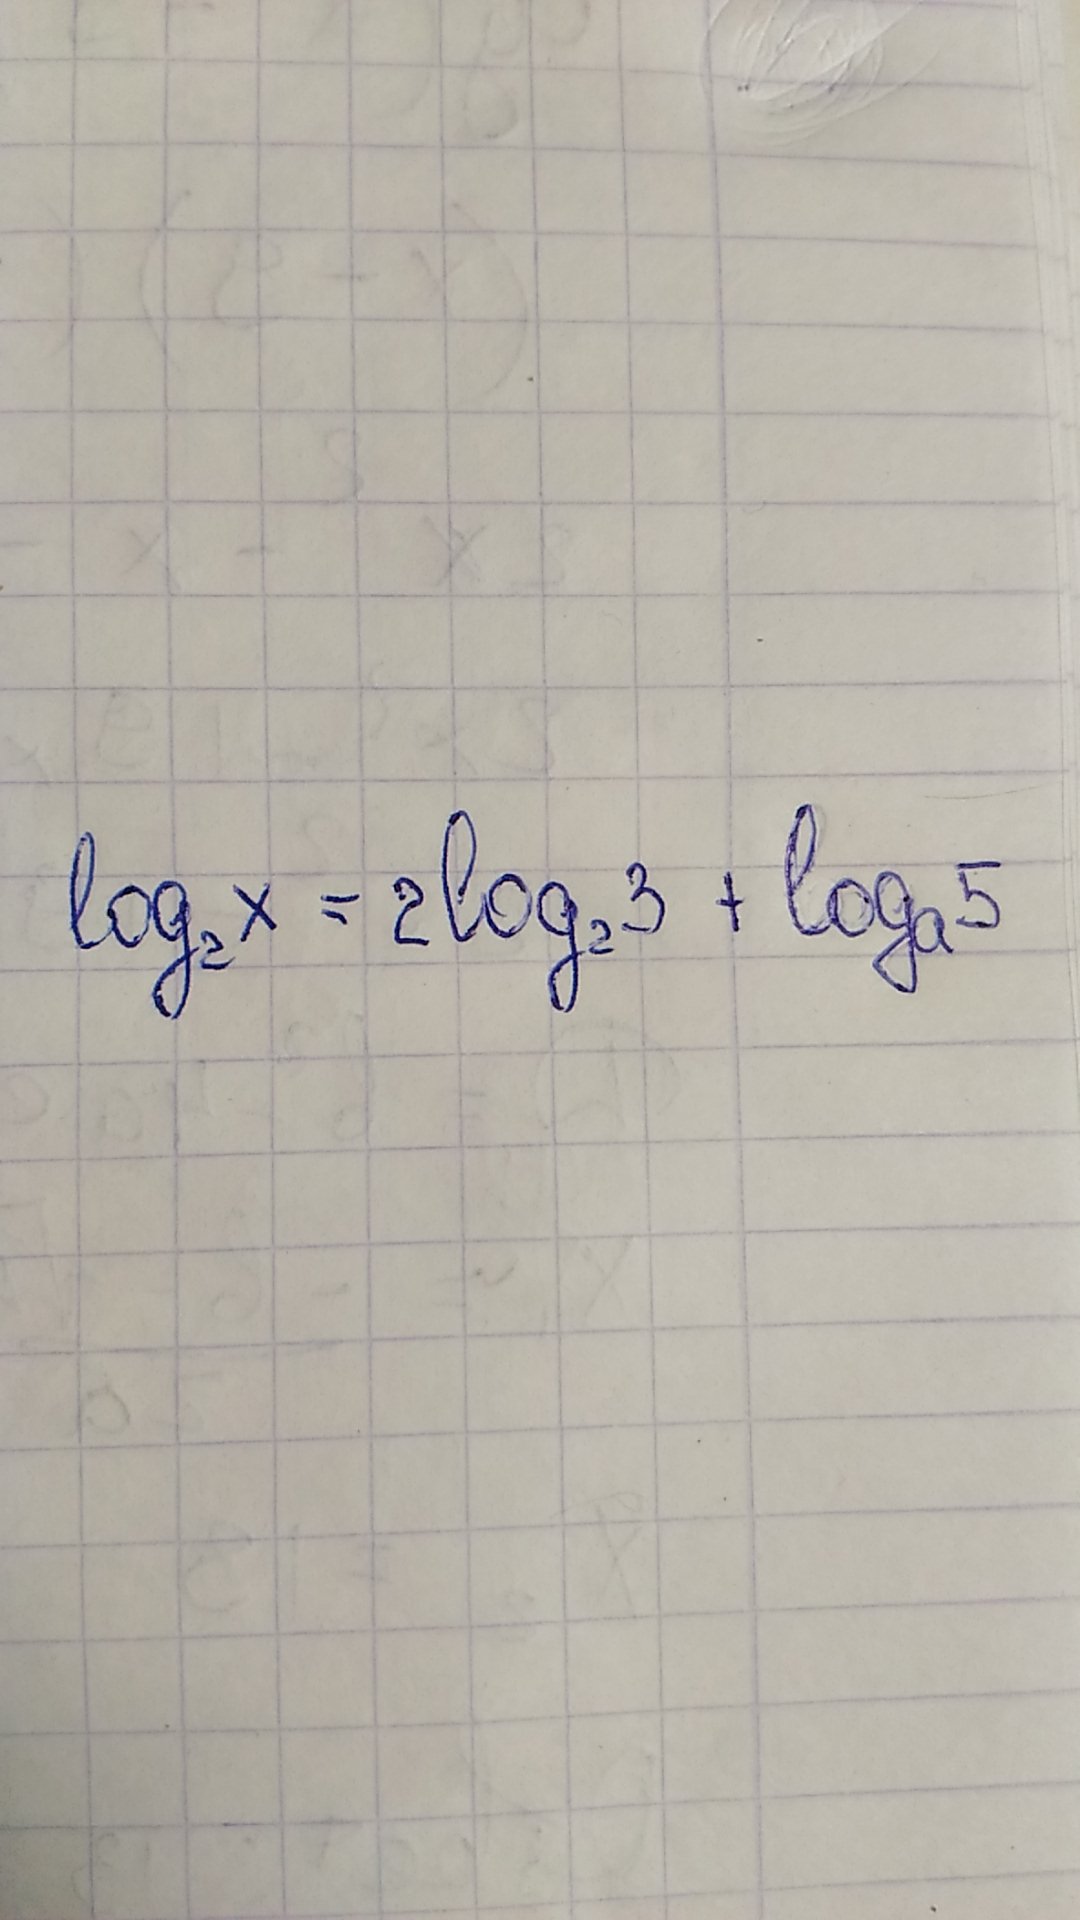 log₂x = 2log₂3 + logₐ5